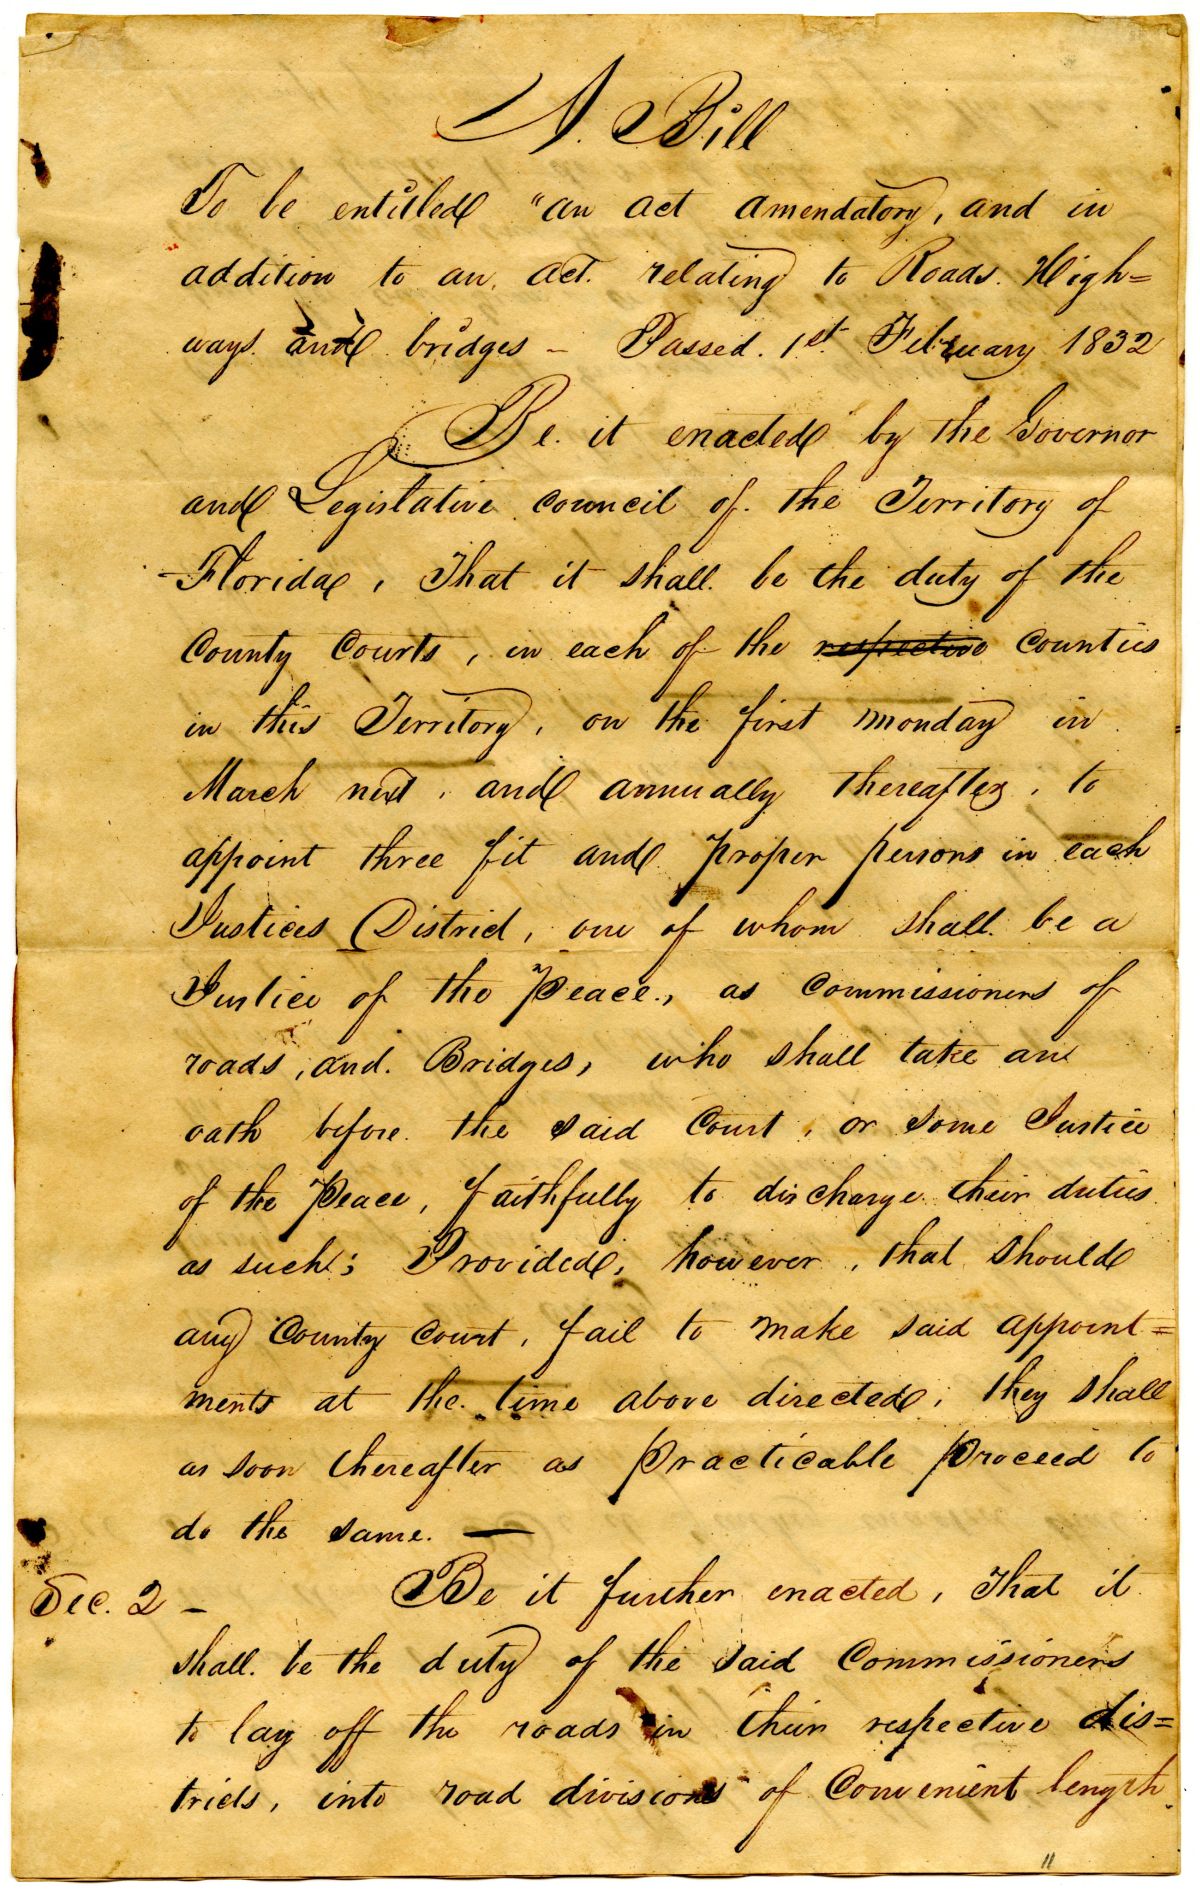 A. Bill
To be entitled "an act amendatory, and in
addition to an, act. relating to Roads. High=
ways. and bridges - Passed. 1st. February 1832
Be. it enacted by the Governor
and Legislative council of. the Territory of
Florida, That it shall. be the duty of the
County Courts, in each of the respective counties
in this Territory, on the first monday in
March next, and annually thereafter, to
appoint three fit and proper persons in each
Justices District, one of whom shall. be a
Justice of the Peace., as commissioners of
roads, and. Bridges, who shall take an
oath before. the said Court, or some Justice
of the Peace, faithfully to discharge their duties
as such; Provided, however, that should
any County Court, fail to make said appoint=
ments at the. time above directed, they shall
as soon thereafter as practicable proceed to
do the same. —
Sec. 2 - Be it further enacted, That it
shall. be the duty of the said Commissioners
to lay off the roads in their respective dis=
tricts, into road divisions of Convenient length
11